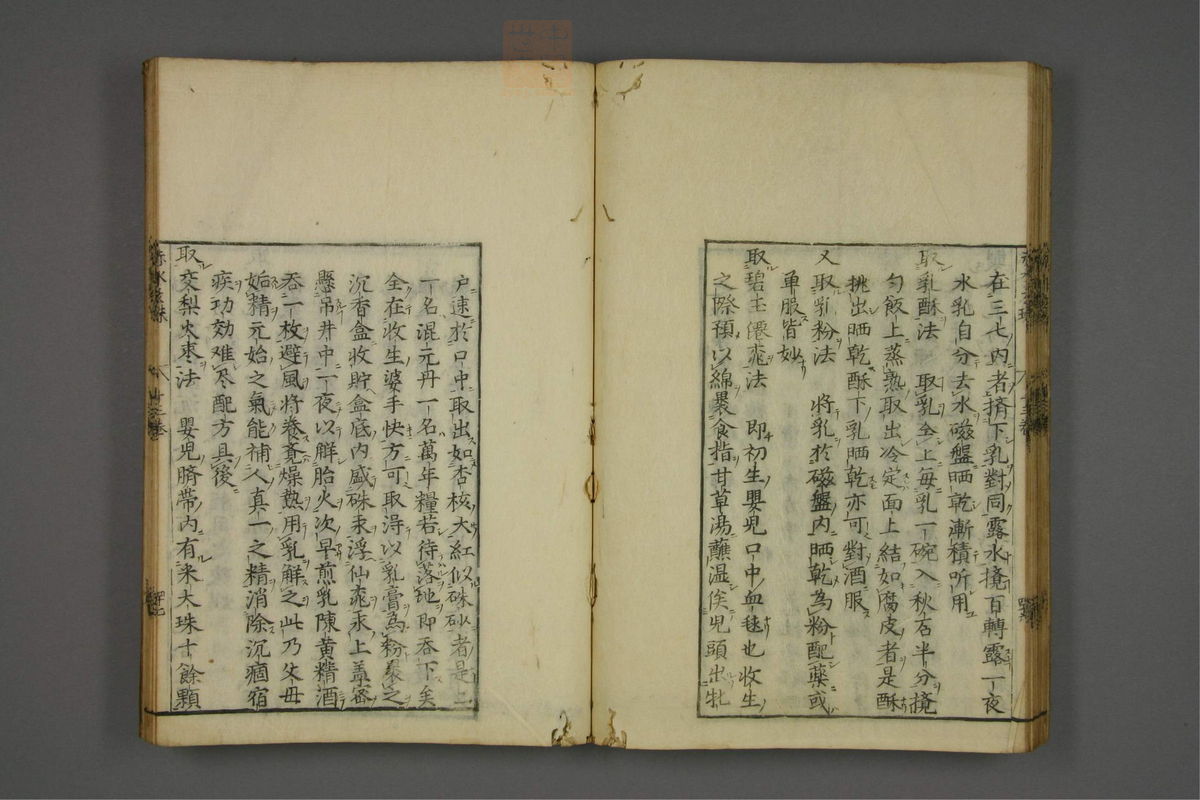 在三七内者擠下乳對同露水攪百轉露一夜
水乳自分去水磁盤晒乾漸積听用
取乳酥法 取乳全上每乳一碗入秋石半分攪
勻飯上蒸熟取出冷定面上結如腐皮者是酥
挑出晒乾酥下乳晒乾亦可對酒服
又取乳粉法 將乳於磁盤内晒乾為粉配藥或
單服皆妙
取碧玉僊桃法 即初生嬰児口中血毬也收生
之際預以綿褁食指甘草湯蘸温俟児頭出牝
户速於口中取出如杏核大紅似硃砂者是二
一名混元丹一名萬年糧若待落地即吞下矣
全在收生婆手快方可取淂以乳膏為粉褁之
沉香盒收貯盒底内盛硃汞浮仙桃汞上盖密
懸吊井中一夜以觧胎火次早煎乳陳黄精酒
吞一枚避風將養斉燥熱用乳觧之此乃父母
姤精元始之氣能補人真一之精消除沉痼宿
疾功効难尽配方具後
取交梨火枣法 嬰児臍帶内有米大珠十餘顆
赤水玄珠